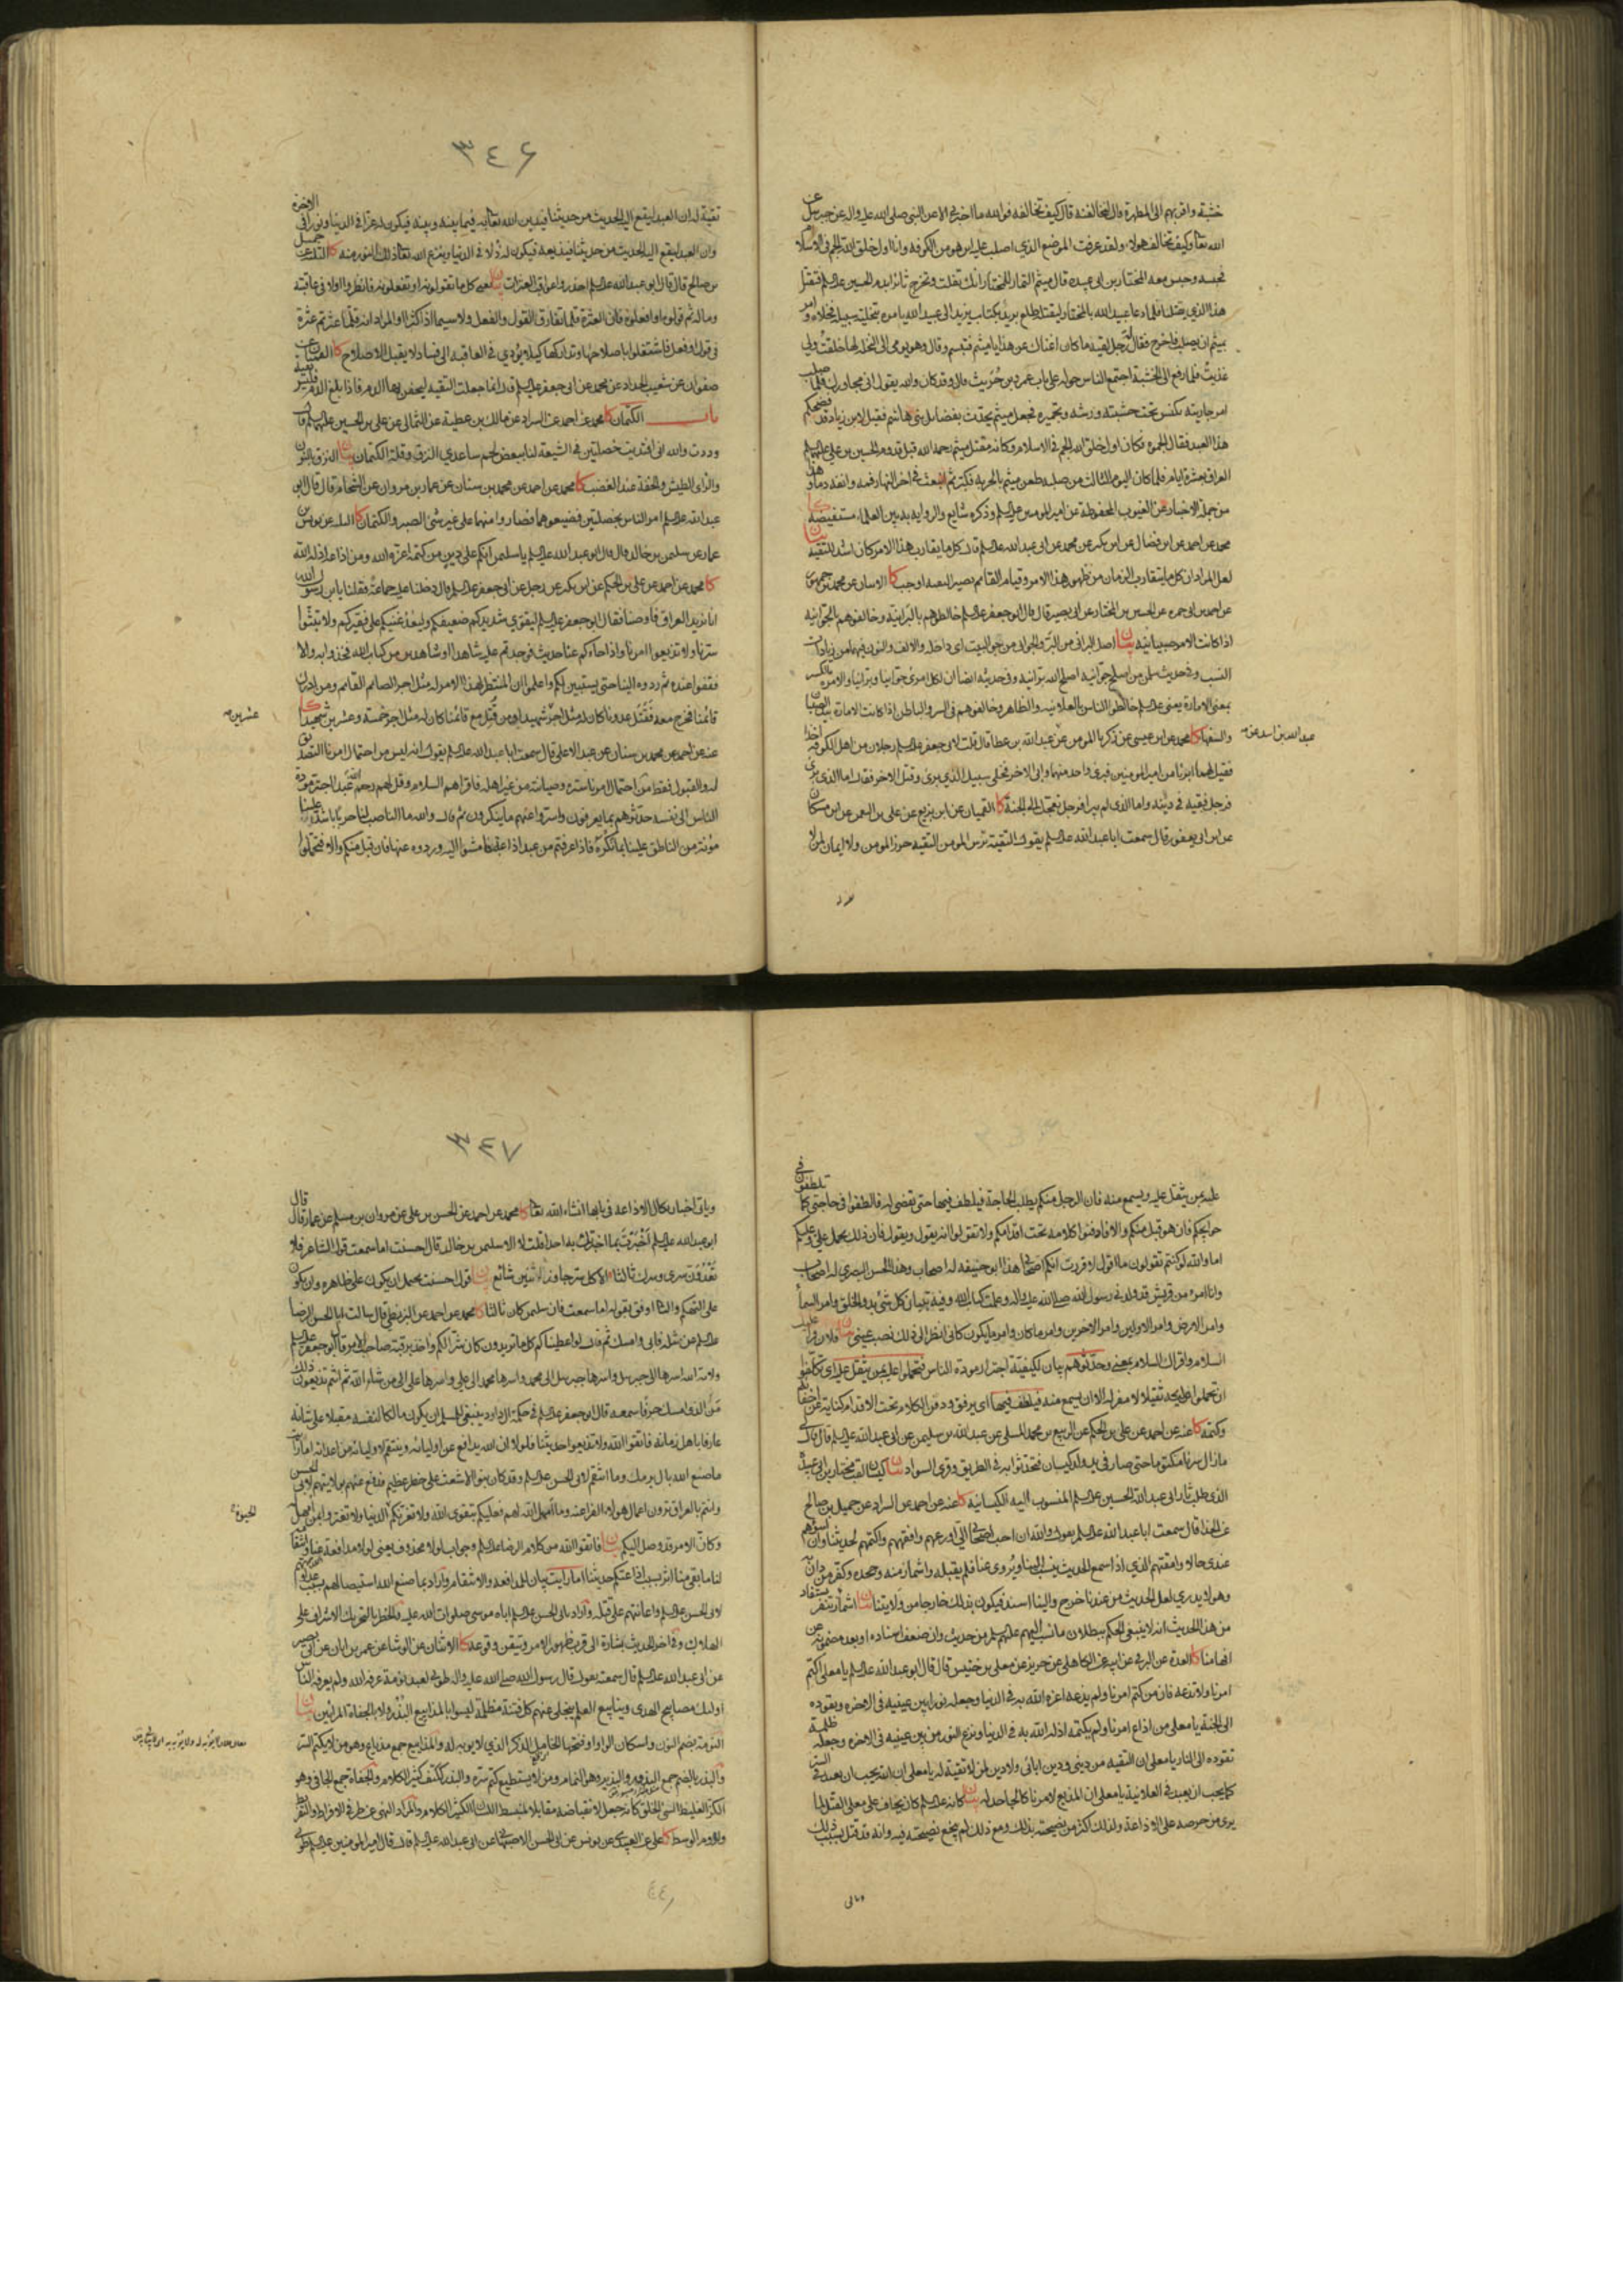 خشبة واقربهم الى المطهرة قال لتخالفنه قال كيف تخالفه فوالله ما اخبرني الا عن النبي صلى الله عليه واله عن جبرئيل عن
الله تعالى وكيف تخالف هولاء ولقد عرفت الموضع الذي اصلب عليه اين هو من الكوفه وانا اول خلق الله الجم في الاسلام
فحبسه وحبس معه المختار بن ابي عبيده قال ميثم التمار للمختار انك تفلت وتخرج ثائرا بدم الحسين عليه السلم فتقتل
هذا الذي يقتلنا فلما دعا عبيد الله بالمختار ليقتله طلع بريد بكتاب يزيد الى عبيد الله يامره بتخلية سبيله فخلاه وامر
بميثم ان يصلب فاخرج فقال له رجل لقيه ما كان اغناك عن هذا يا ميثم فتبسم وقال وهو يومي الى النخلة لها خلقت ولي
غذيت فلما رفع الى الخشبة اجتمع الناس حوله على باب عمرو بن حريث قال وقد كان والله يقول اني مجاورك فلما صلب
امر جاريته بكنس تحت خشبته ورشه وتجميره فجعل ميثم يحدث بفضايل بني هاشم فقيل لابن زياد قد فضحكم
هذا العبد فقال الجموه فكان اول خلق الله الجم في الاسلام وكان مقتل ميثم رحمه الله قبل قدوم الحسين بن علي عليهما السلم
العراق بعشرة ايام فلما كان اليوم الثالث من صلبه طعن ميثم بالحربه فكبر ثم انبعث في اخر النهار فمه وانفه دما وهذا
من جملة الاخبار عن الغيوب المحفوظة عن امير المومنين عليه السلم وذكره شايع والروايه به بين العلماء مستفيضه كا
محمد عن احمد عن ابن فضال عن ابن بكير عن محمد عن ابي عبد الله عليه السلم قال كل ما يقارب هذا الامر كان اشد للتقيه بيان
لعل المراد ان كل ما يتقارب الزمان من ظهور هذا الامر وقيام القائم تصير التقيه اوجب كا
عن احمد بن ابي حمزه عن الحسين بن المختار عن ابي بصير قال قال ابو جعفر عليه السلم خالطوهم بالبرانية وخالفوهم بالجوانيه
اذا كانت الامرة صبيانيه بيان اصل البراني من البر والجواني من جو البيت اي داخله والالف والنون فيهما من زيادات
النسب وفي حديث سلمن من اصلح جوانيه اصلح الله برانيه وفي حديثه ايضا ان لكل امرئ جوانيا وبرانيا والامرة بالكسر
بمعنى الامارة يعني عليه السلم خالطوا الناس بالعلانيه والظاهر وخالفوهم في السر والباطن اذا كانت الامارة بيد الصبيان
والسفهاء كا محمد عن ابن عيسى عن زكريا المومن عن عبد الله بن عطا قال قلت لابي جعفر عليه السلم رجلان من اهل الكوفه اخذا
عبد الله بن اسد عن
فقيل لهما ابرئا من امير المومنين فبرئ واحد منهما وابى الاخر فخلي سبيل الذي برئ وقتل الاخر فقال اما الذي برئ
فرجل فقيه في دينه واما الذي لم يبرا فرجل تعجل الى الجنة كا القميان عن ابن بزيع عن علي بن النعمن عن ابن مسكان
عن ابن ابي يعفور قال سمعت ابا عبد الله عليه السلم يقول التقية ترس المومن التقيه حرز المومن ولا ايمان لمن لا
٣٤٦
تقية له ان العبد ليقع اليه الحديث من حديثنا فيدين الله تعالى به فيما بينه وبينه فيكون له عزا في الدنيا ونورا في الاخرة
وان العبد ليقع اليه الحديث من حديثنا فيذيعه فيكون له ذلا في الدنيا وينزع الله تعالى ذلك النور منه كا الثلثه عن جميل
بن صالح قال قال ابو عبد الله عليه السلم احذروا عواقب العثرات بيان يعني كل ما تقولونه او تفعلونه فانظروا اولا في عاقبته
وماله ثم قولوه او افعلوه فان العثرة قلما تفارق القول والفعل ولا سيما اذا كثرا او المراد انه قلما عثر ثم عثرة
في قول او فعل فاشتغلوا باصلاحها وتداركها كيلا يؤدي في العاقبه الى فساد لا يقبل الاصلاح كا القميان عن
صفوان عن شعيب الحداد عن محمد عن ابي جعفر عليه السلم قال انما جعلت التقيه ليحقن بها الدم فاذا بلغ الدم فليس تقية
باب الكتمان كا محمد عن احمد عن السراد عن مالك بن عطية عن الثمالي عن علي بن الحسين عليهما السلم قال
وددت والله اني افتديت خصلتين في الشيعة لنا ببعض لحم ساعدي النزق وقلة الكتمان بيان النزق بالنون
والزاي الطيش والخفة عند الغضب كا محمد عن احمد عن محمد بن سنان عن عمار بن مروان عن الشحام قال قال ابو
عبد الله عليه السلم امر الناس بخصلتين فضيعوهما فصاروا منهما على غير شئ الصبر والكتمان كا الثلثه عن يونس بن
عمار عن سليمن بن خالد قال قال ابو عبد الله عليه السلم يا سليمن انكم على دين من كتمه اعزه الله ومن اذاعه اذله الله
كا محمد عن احمد عن علي بن الحكم عن ابن بكير عن رجل عن ابي جعفر عليه السلم قال دخلنا عليه جماعة فقلنا يا بن رسول الله
انا نريد العراق فاوصنا فقال ابو جعفر عليه السلم ليقوي شديدكم ضعيفكم وليعد غنيكم على فقيركم ولا تبثوا
سرنا ولا تذيعوا امرنا واذا جاءكم عنا حديث فوجدتم عليه شاهدا او شاهدين من كتاب الله فخذوا به والا
فقفوا عنده ثم ردوه الينا حتى يستبين لكم واعلموا ان المنتظر لهذا الامر له مثل اجر الصائم القائم ومن ادرك
قائمنا فخرج معه فقتل عدونا كان له مثل اجر شهيد ومن قتل مع قائمنا كان له مثل اجر خمسة وعشرين شهيدا كا
عشرين
عنه عن احمد عن محمد بن سنان عن عبد الاعلى قال سمعت ابا عبد الله عليه السلم يقول انه ليس من احتمال امرنا التصديق
له والقبول فقط من احتمال امرنا ستره وصيانته من غير اهله فاقراهم السلام وقل لهم رحم الله عبدا اجتر مودة
الناس الى نفسه حدثوهم بما يعرفون واستروا عنهم ما ينكرون ثم قال والله ما الناصب لنا حربا باشد علينا
مؤنة من الناطق علينا بما نكره فاذا عرفتم من عبد اذاعة فامشوا اليه وردوه عنها فان قبل منكم والا فتحملوا
عليه بمن يثقل عليه ويسمع منه فان الرجل منكم يطلب الحاجة فيلطف فيها حتى تقضى له فالطفوا في حاجتي كما تلطفون في
حوايجكم فان هو قبل منكم والا فادفنوا كلامه تحت اقدامكم ولا تقولوا انه يقول ويقول فان ذلك يحمل علي وعليكم
اما والله لو كنتم تقولون ما اقول لاقررت انكم اصحابي هذا ابو حنيفه له اصحاب وهذا الحسن البصري له اصحاب
وانا امرء من قريش قد ولدني رسول الله صلى الله عليه واله وعلمت كتاب الله وفيه تبيان كل شئ بدو الخلق وامر السماء
وامر الارض وامر الاولين وامر الاخرين وامر ما كان وامر ما يكون كاني انظر الى ذلك نصب عيني بيان
السلام واقراك السلام بمعنى وحدثوهم بيان لكيفية اجتراره مودة الناس فتحملوا عليه بمن يثقل عليه اي تكلفوا
ان تحملوا عليه ثقيلا لا مفر له الا ان يسمع منه فيلطف فيها اي يرفق ودفن الكلام تحت الاقدام كناية عن اخفائه
وكتمه كا عنه عن احمد عن علي بن الحكم عن الربيع بن محمد المسلي عن عبد الله بن سليمن عن ابي عبد الله عليه السلم قال قال لي
ما زال سرنا مكتوما حتى صار في يد ولد كيسان فتحدثوا به في الطريق وقرى السواد بيان كيسان لقب مختار بن ابي عبيد
الذي طلب ثار ابي عبد الله الحسين عليه السلم المنسوب اليه الكيسانيه كا عنه عن احمد عن السراد عن جميل بن صالح
عن الحذا قال سمعت ابا جعفر عليه السلم يقول والله ان احب اصحابي الي اورعهم وافقههم واكتمهم لحديثنا وان اسواهم
عندي حالا وامقتهم الذي اذا سمع الحديث ينسب الينا ويروى عنا فلم يقبله واشماز منه وجحده وكفر من دان به
وهو لا يدري لعل الحديث من عندنا خرج والينا اسند فيكون بذلك خارجا من ولايتنا بيان اشماز تنفر يستفاد
من هذا الحديث انه لا ينبغي الحكم ببطلان ما نسب اليهم عليهم السلم من حديث وان ضعف اسناده او بعد مضمونه عن
افهامنا كا العدة عن البرقي عن ابيه عن الكاهلي عن حريز عن معلى بن خنيس قال قال ابو عبد الله عليه السلم يا معلى اكتم
امرنا ولا تذعه فان من كتم امرنا ولم يذعه اعزه الله به في الدنيا وجعله نورا بين عينيه في الاخره ويقوده
الى الجنة يا معلى من اذاع امرنا ولم يكتمه اذله الله به في الدنيا ونزع النور من بين عينيه في الاخره وجعله ظلمة
تقوده الى النار يا معلى ان التقيه من ديني ودين ابائي ولا دين لمن لا تقية له يا معلى ان الله يحب ان يعبد في السر
كما يحب ان يعبد في العلانية يا معلى ان المذيع لامرنا كالجاحد له بيان كانه عليه السلم كان يخاف على معلى القتل لما
يرى من حرصه على الاذاعة ولذلك اكثر من نصيحته بذلك ومع ذلك لم ينجع نصيحته فيه وانه قد قتل بسبب ذلك
٣٤٧
وياتي اخبار نكال الاذاعه في بابها انشاء الله تعالى كا محمد عن احمد عن الحسن بن علي عن مروان بن مسلم عن عمار قال قال
ابو عبد الله عليه السلم اخبرت بما اخبرتك به احدا قلت لا الا سليمن بن خالد قال احسنت اما سمعت قول الشاعر فلا
يعدون سري وسرك ثالثا الا كل سر جاوز اثنين شائع بيان قوله احسنت يحتمل ان يكون على ظاهره وان يكون
على التهكم والثاني اوفق بقوله اما سمعت فان سليمن كان ثالثا كا محمد عن احمد عن البزنطي قال سالت ابا الحسن الرضا
عليه السلم عن مسئلة فابى وامسك ثم قال لو اعطيناكم كل ما تريدون كان شرا لكم واخذ برقبة صاحب هذا الامر قال ابو جعفر عليه السلم
ولاية الله اسرها الى جبرئيل واسرها جبرئيل الى محمد واسرها محمد الى علي واسرها علي الى من شاء الله ثم انتم تذيعون ذلك
من الذي امسك حرفا سمعه قال ابو جعفر عليه السلم في حكمة ال داود ينبغي للمسلم ان يكون مالكا لنفسه مقبلا على شانه
عارفا باهل زمانه فاتقوا الله ولا تذيعوا حديثنا فلولا ان الله يدافع عن اوليائه وينتقم لاوليائه من اعدائه اما رايت
ما صنع الله بال برمك وما انتقم لابي الحسن عليه السلم وقد كان بنو الاشعث على خطر عظيم فدفع عنهم بولايتهم لابي الحسن
وانتم بالعراق ترون اعمال هولاء الفراعنة وما امهل الله لهم فعليكم بتقوى الله ولا تغرنكم الدنيا ولا تغتروا بمن امهل له
الحيوة
وكان الامر قد وصل اليكم بيان فاتقوا الله من كلام الرضا عليه السلم وجواب لولا محذوف يعني لولا مدافعة الله عنا وانتقامه
لنا ما بقي منا اثر بسبب اذاعتكم حديثنا اما رايت بيان للمدافعة والانتقام واراد بما صنع الله استيصالهم بسبب عداوتهم
لابي الحسن عليه السلم واعانتهم على قتله واراد بابي الحسن عليه السلم اباه موسى صلوات الله عليه والخطر بالتحريك الاشراف على
الهلاك وفي اخر الحديث بشارة الى قرب ظهور الامر وتيقن وقوعه كا الاثنان عن الوشا عن عمر بن ابان عن ابي بصير
عن ابي عبد الله عليه السلم قال سمعته يقول قال رسول الله صلى الله عليه واله طوبى لعبد نومة عرفه الله ولم يعرفه الناس
اولئك مصابيح الهدى وينابيع العلم ينجلي عنهم كل فتنة مظلمة ليسوا بالمذاييع البذر ولا بالجفاة المرائين بيان
النومة بضم النون واسكان الواو او فتحها الخامل الذكر الذي لا يوبه له والمذاييع جمع مذياع وهو من لا يكتم السر
والبذر بالضم جمع البذور والبذير وهو النمام ومن لا يستطيع كتم سره والبذر ككتف كثير الكلام والجفاة جمع الجافي وهو
الكز الغليظ السئ الخلق كانه جعله لانقباضه مقابلا لمنبسط اللسان الكثير الكلام والمراد النهي عن طرفي الافراط والتفريط
ولزوم الوسط كا علي عن العبيدي عن يونس عن ابي الحسن الاصبهاني عن ابي عبد الله عليه السلم قال قال امير المومنين عليه السلم طوبى